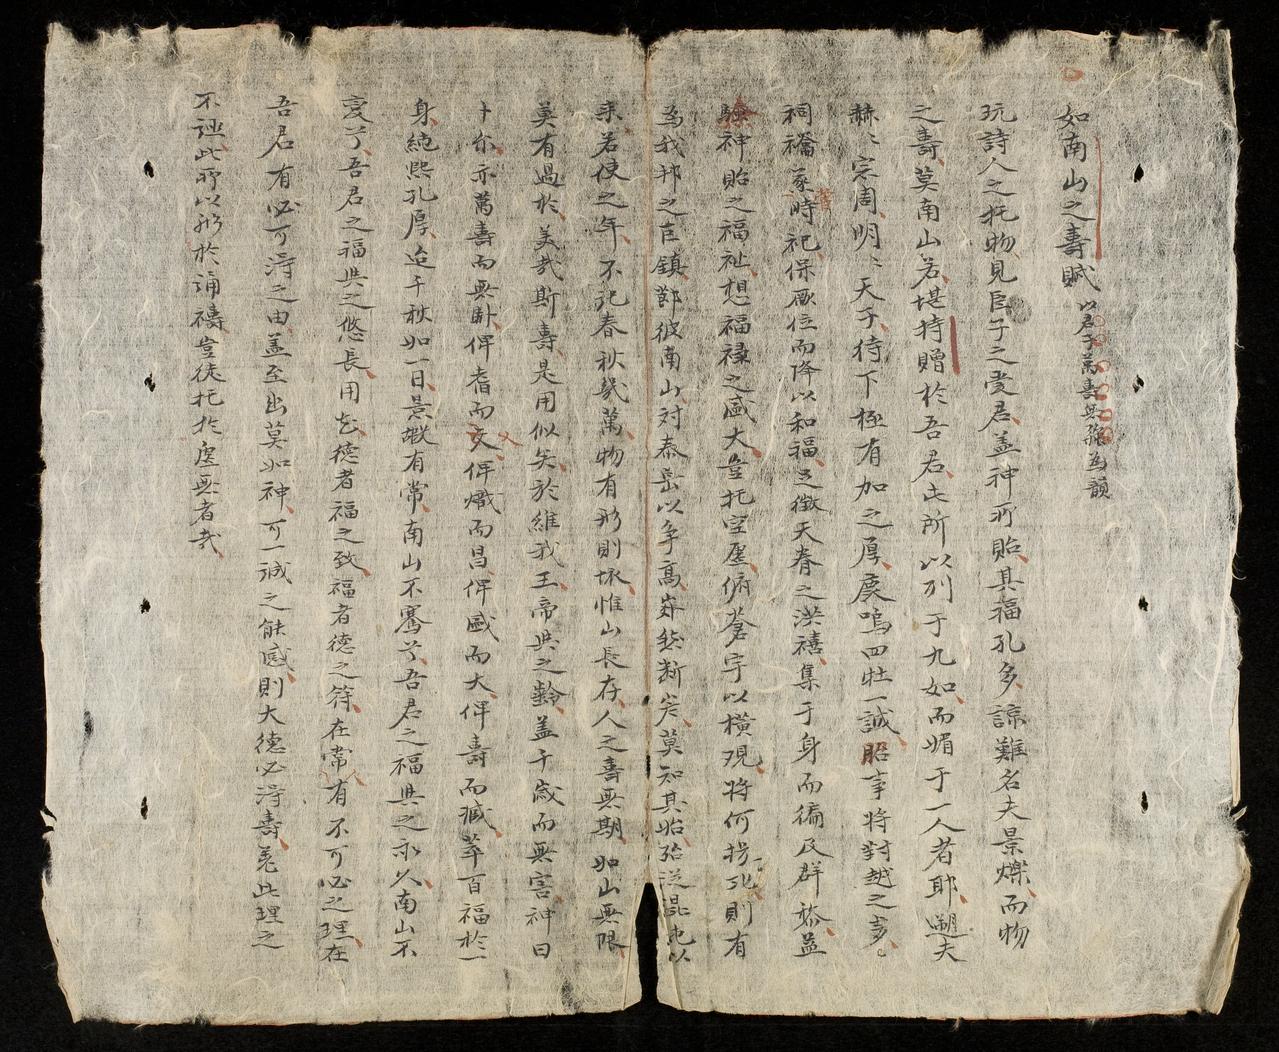 如南山之壽賦 以君子萬壽無疆為韻
玩詩人之托物見臣子之愛君盖神所貽其福孔多諒難名夫景爍而物
之壽莫南山若堪持贈於吾君此所以列于九如而媚于一人者耶遡夫
赫〻宗周明〻天子待下極有加之厚廣嗚四牡一誠昭事將對越之多
祠禴蒸甞時祀保厥位而降以和福之徵天眷之洪禧集于身而徧及群
驗神貽之福祉想福祿之盛大豈托空虛俯蒼宇以橫現將何則有
為我邦之巨鎮鄷彼南山对泰岳以争高莽然断岸莫知其始殆從混屯以
来若使之年不記春秋幾萬物有形則壞惟山長存人之壽無期如山無限
莫有過於美哉斯壽是用似矣於維我王帝與之齡盖千歲而無害神曰
卜尔亦萬壽而無卧俾耆而艾俾熾而昌俾盛而大俾壽而臧萃百福於一
身純熙孔厚迨千秋如一日景嘏有常南山不騫兮吾君之福與之永久南山不
変兮吾君之福與之悠長用乞德者福之致福者德之符在常有不可必之理在
吾君有必可淂之由盖至出莫如神可一誠之能感則大德必淂壽㒵此理之
不誣此所以形於誦禱豈徒托於虛無者哉